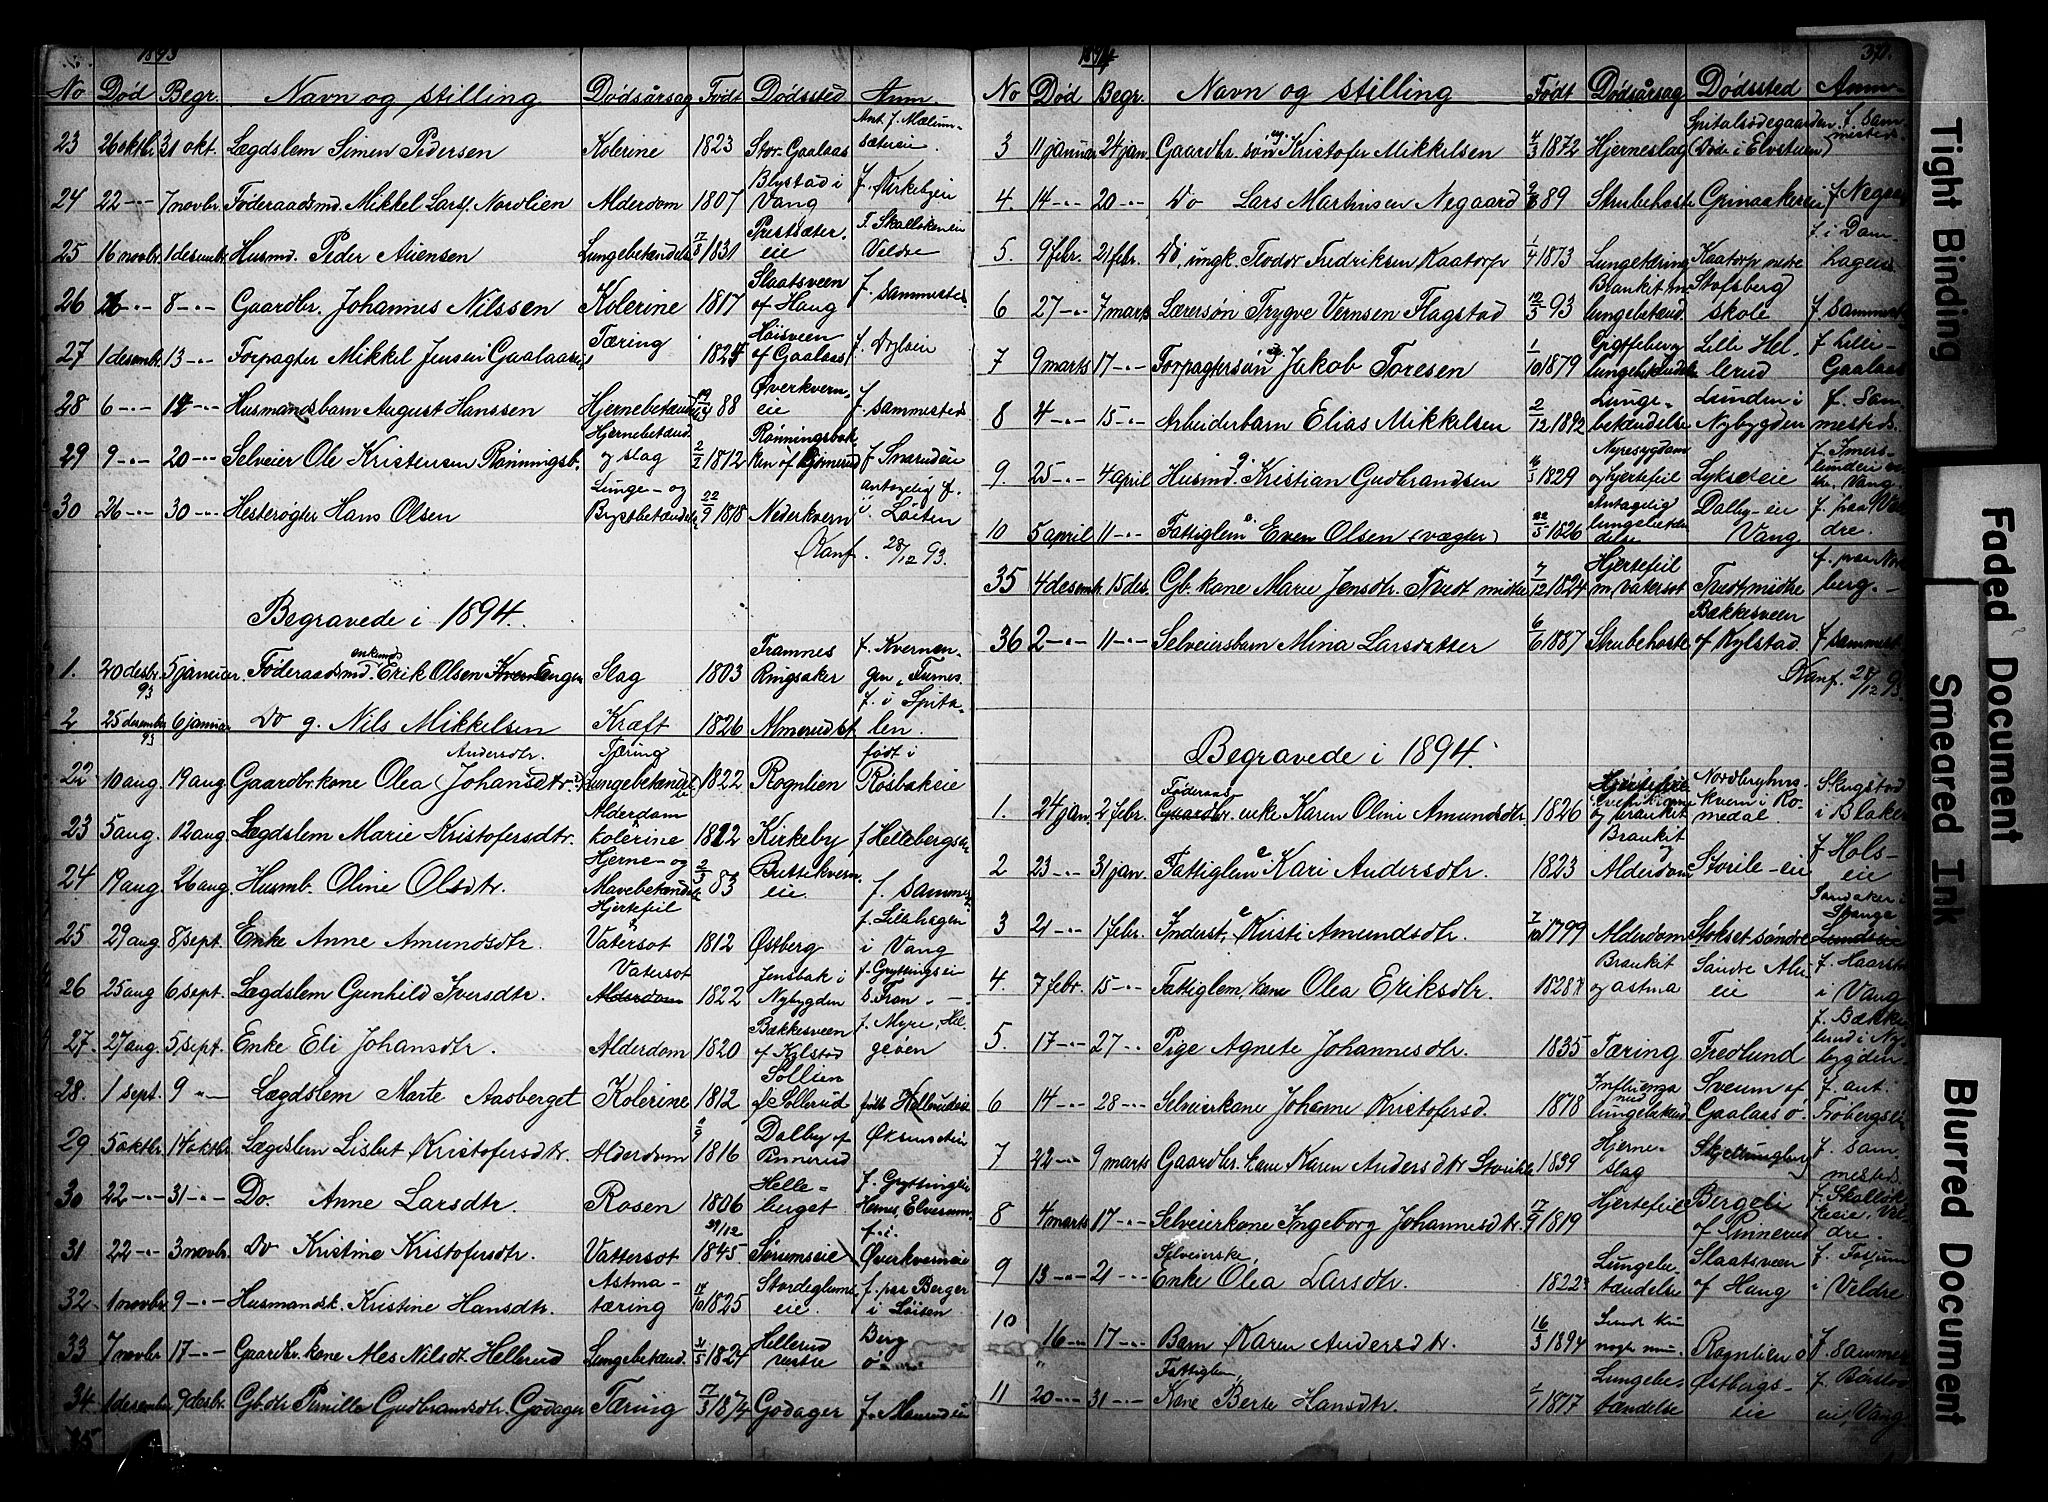 1893
No Død Begr. Navn og stilling Dødsårsag Født Dødssted Anm.
23 26 oktbr. 31 okt. Lægdslem Simen Pedersen Kolerine 1823 Stor-Gaalaas Ant. f. Mælum-sæterei
24 22 -"- 7 novbr. Føderaadsmd. Mikkel Larss. Nordlien Alderdom 1807 Blystad i Vang f. Kirkebyei
25 16 novbr. 1 desembr. Husmd. Peder Auensen Lungebetændelse 17/3 1831 Prestsæter-eie f. Skallskeneie Veldre
26 26 -"- 8 -"- Gaardbr. Johannes Nilssen Kolerine 1817 Slaatsveen of Haug f. sammesteds
27 1 desembr. 13 -"- Forpagter Mikkel Jensen Gaalaasei Tæring 1827 Høisveen of Gaalaas f.
28 6 -"- 14 -"- Husmandsbarn August Hanssen Hjernebetænd. 88 Øverkvern-eie f. sammesteds
29 9 -"- 20 -"- Selveier Ole Kristensen Rønningsb. Hjernebetænd. og slag 2/2 1812 Rønningsbakken of f. Snarudeie
30 26 -"- 30 -"- Hesterøgter Hans Olsen Lunge- og Brystbetændelse 22/9 1818 Nederkvern antagelig f. i Løiten
Konf. 28/12 93.
Begravede i 1894.
1. 20 desbr. 93 5 januar Føderaadsmd. enkemd. Erik Olsen Engen Slag 1803 Framnes Ringsaker f. Kvernen-gen, Furnes
2 25 desember 93 6 januar Do g. Nils Mikkelsen Kræft 1826 Almerudst f. i Spita-len.
22 10 aug. 19 aug. Gaardbr. kone Olea Andersdtr. (Johansdtr.) Tæring (Lungebetændelse) 1822 Rognlien født i Røsbakeie
23 5 aug. 12 aug. Lægdslem Marie Kristofersdtr. Alderdom kolerine 1812 Kirkeby f. Hellebergseie
24 19 aug. 26 aug. Husmb. Oline Olsdtr. Hjerne- og Mavebetændelse 2/3 83 Buttekvern-eie. f. sammest
25 29 aug. 8 sept. Enke Anne Amundsdtr. Hjertefeil Vatersot 1812 Østberg f. Lillehagen i Vang
26 25 aug 6 sept. Lægdslem Gunhild Iversdtr. Vatersot Alderdom 1822 Jensbak i Nybygden f. Gryttingsei
27. 27 aug. 5 sept. Enke Eli Johansdtr. Alderdom 1820 Bækkesveen of Kylstad f. Myre, Hel-geøen
28. 1 sept. 9 -"- Lægdslem Marte Aasberget Kolerine 1812 Sollien of Sollerud født Hellerudeie
29 5 oktbr. 14 oktbr. Lægdslem Lisbet Kristofersdtr. Alderdom 1816 Dalby of Pinnerud Øksensetein
30 22 -"- 31 -"- Do. Anne Larsdtr. Rosen 1806 Helle-berget f. Gryttingeie Hernes, Elverum
31 22 -"- 3 novbr. Do Kristine Kristofersdtr. Vattersot 29/12 1845 Sørumseie f. i Øverkverneie
32 1 novbr. 9 -"- Husmandsk. Kristine Hansdtr. Astma-tæring 14/10 1825 eie. f. paa Berger i Løiten
33 7 novbr 17 -"- Gaardbr. kone Ales Nilsdt. Hellerud Lungebetænd. 1824 Hellerud vestre Berg ø
34 1 desember 9 desbr. Gb. dtr Pernille Gudbrandsdtr. Godager Tæring 17/3 1874 Godager f. Monsrudei
35
1894
30.
No Død Begr. Navn og stilling Født Dødsårsag Dødssted Anm.
3 11 januar 24 jan. Gaardbr. søn ug. Kristofer Mikkelsen 4/3 1872 Hjerneslag Spitalsødegaarden (Døde i Elvstuen) f. Sam-mesteds
4. 14 -"- 20 -"- Do Lars Martinsen Negaard 89 Strubehoste Grinaakerei f. Negaard
5. 9 febr. 21 febr. Do, ungk. Flodor Fredriksen Kaatorp 1/4 1873 Lungetæring Kaatorp f. i Dam-hagen
6 27 -"- 7 marts Lærersøn Trygve Vernsen Flagstad 12/3 93 Brankit m. lungebetænd. Stofsberg skole f. sammest
7 9 marts 17 -"- Forpagtersøn ug. Jakob Toresen 1/10 1879 Gigtfeber og lungebetændelse Lille Hel-lerud f. Lille-Gaalaas
8 4 -"- 15 -"- Arbeiderbarn Elias Mikkelsen 2/12 1892 Lunge-betændelse Lunden i Nybygden f. Sam-mesteds.
9. 25 -"- 4 april Husmd. g. Kristian Gudbrandsen 16/3 1829 Nyresygdom og hjertefeil Lykseteie f. Imers-lundeie Vang
10 5 april 11 -"- Fattiglem e Even Olsen (vægter) 22/5 1826 Antagelig lungebetæn-delse Dalby-eie Vang f. paa Vel-dre.
35 4 desemb. 15 des. Gb. kone Marie Jensdtr. Tvedt midtre 7/12 1824 Hjertefeil m. vatersot Tvedt midtre f. paa Nor-berg.
36 2 -"- 11 -"- Selveiersbarn Mina Larsdatter 6/6 1887 Strubehoste Bækkesveen of Kylstad f. sammest
Konf. 28/12 93
Begravede i 1894.
1. 24 jan. 2 febr. Føderaas Gaardbr. enke Karen Oline Amundsdtr. 1826 Hjertefeil og brankit Nordbryhns-kvern i Ro-medal. Skugstad i Blaker
2 23 -"- 31 jan. Fattiglem e Kari Andersdtr. 1823 Brankit Alderdom Storile-eie f. Hols-eie
3 21 -"- 1 febr. Inderst, e Kirsti Amundsdtr. 7/10 1799 Alderdom Stokset søndre Sandaker i Stange
4. 7 febr. 15 -"- Fattiglem, kone Olea Eriksdtr. 1828 Brankit og astma Søndre Alu-eie f. Haarst i Vang
5. 17 -"- 27 -"- Pige Agnete Johannesdtr. 1835 Tæring Fredlund f. Bække-lund i Ny-bygden
6 14 -"- 28 -"- Selveierkone Johanne Kristofersd. 1818 Influenza med lungebetænd Sveum of Gaalaas ø. f. ant. i Frøbergseie
7 22 -- 9 marts Gaardbr. kone Karen Andersdtr Storihle 1839 Hjerne-slag f. sam-mesteds.
8 4 marts 17 -"- Selveierkone Ingeborg Johannesdtr. 17/9 1819 Hjertefeil Bergeli of Pinnerud f. Skallsk-keneie, Vel-dre.
9 13 -"- 21 -"- Selveierske, Enke Olea Larsdtr. 1822 Lungebe-tændelse Slaatsveen of Haug f. Fossum i Veldre
10 16 -"- 17 -"- Barn Karen Andersdtr. 16/3 1894 Levede kun nogle min. Rognlien ø f. sammest
11 20 -"- 31 -"- Fattiglem, Kone Berte Hansdtr 1817 Lungebe-tændelse Østbergs-eie f. Børstad ei, Vang
Tight Binding
Faded Document
Smeared Ink
Blurred Document